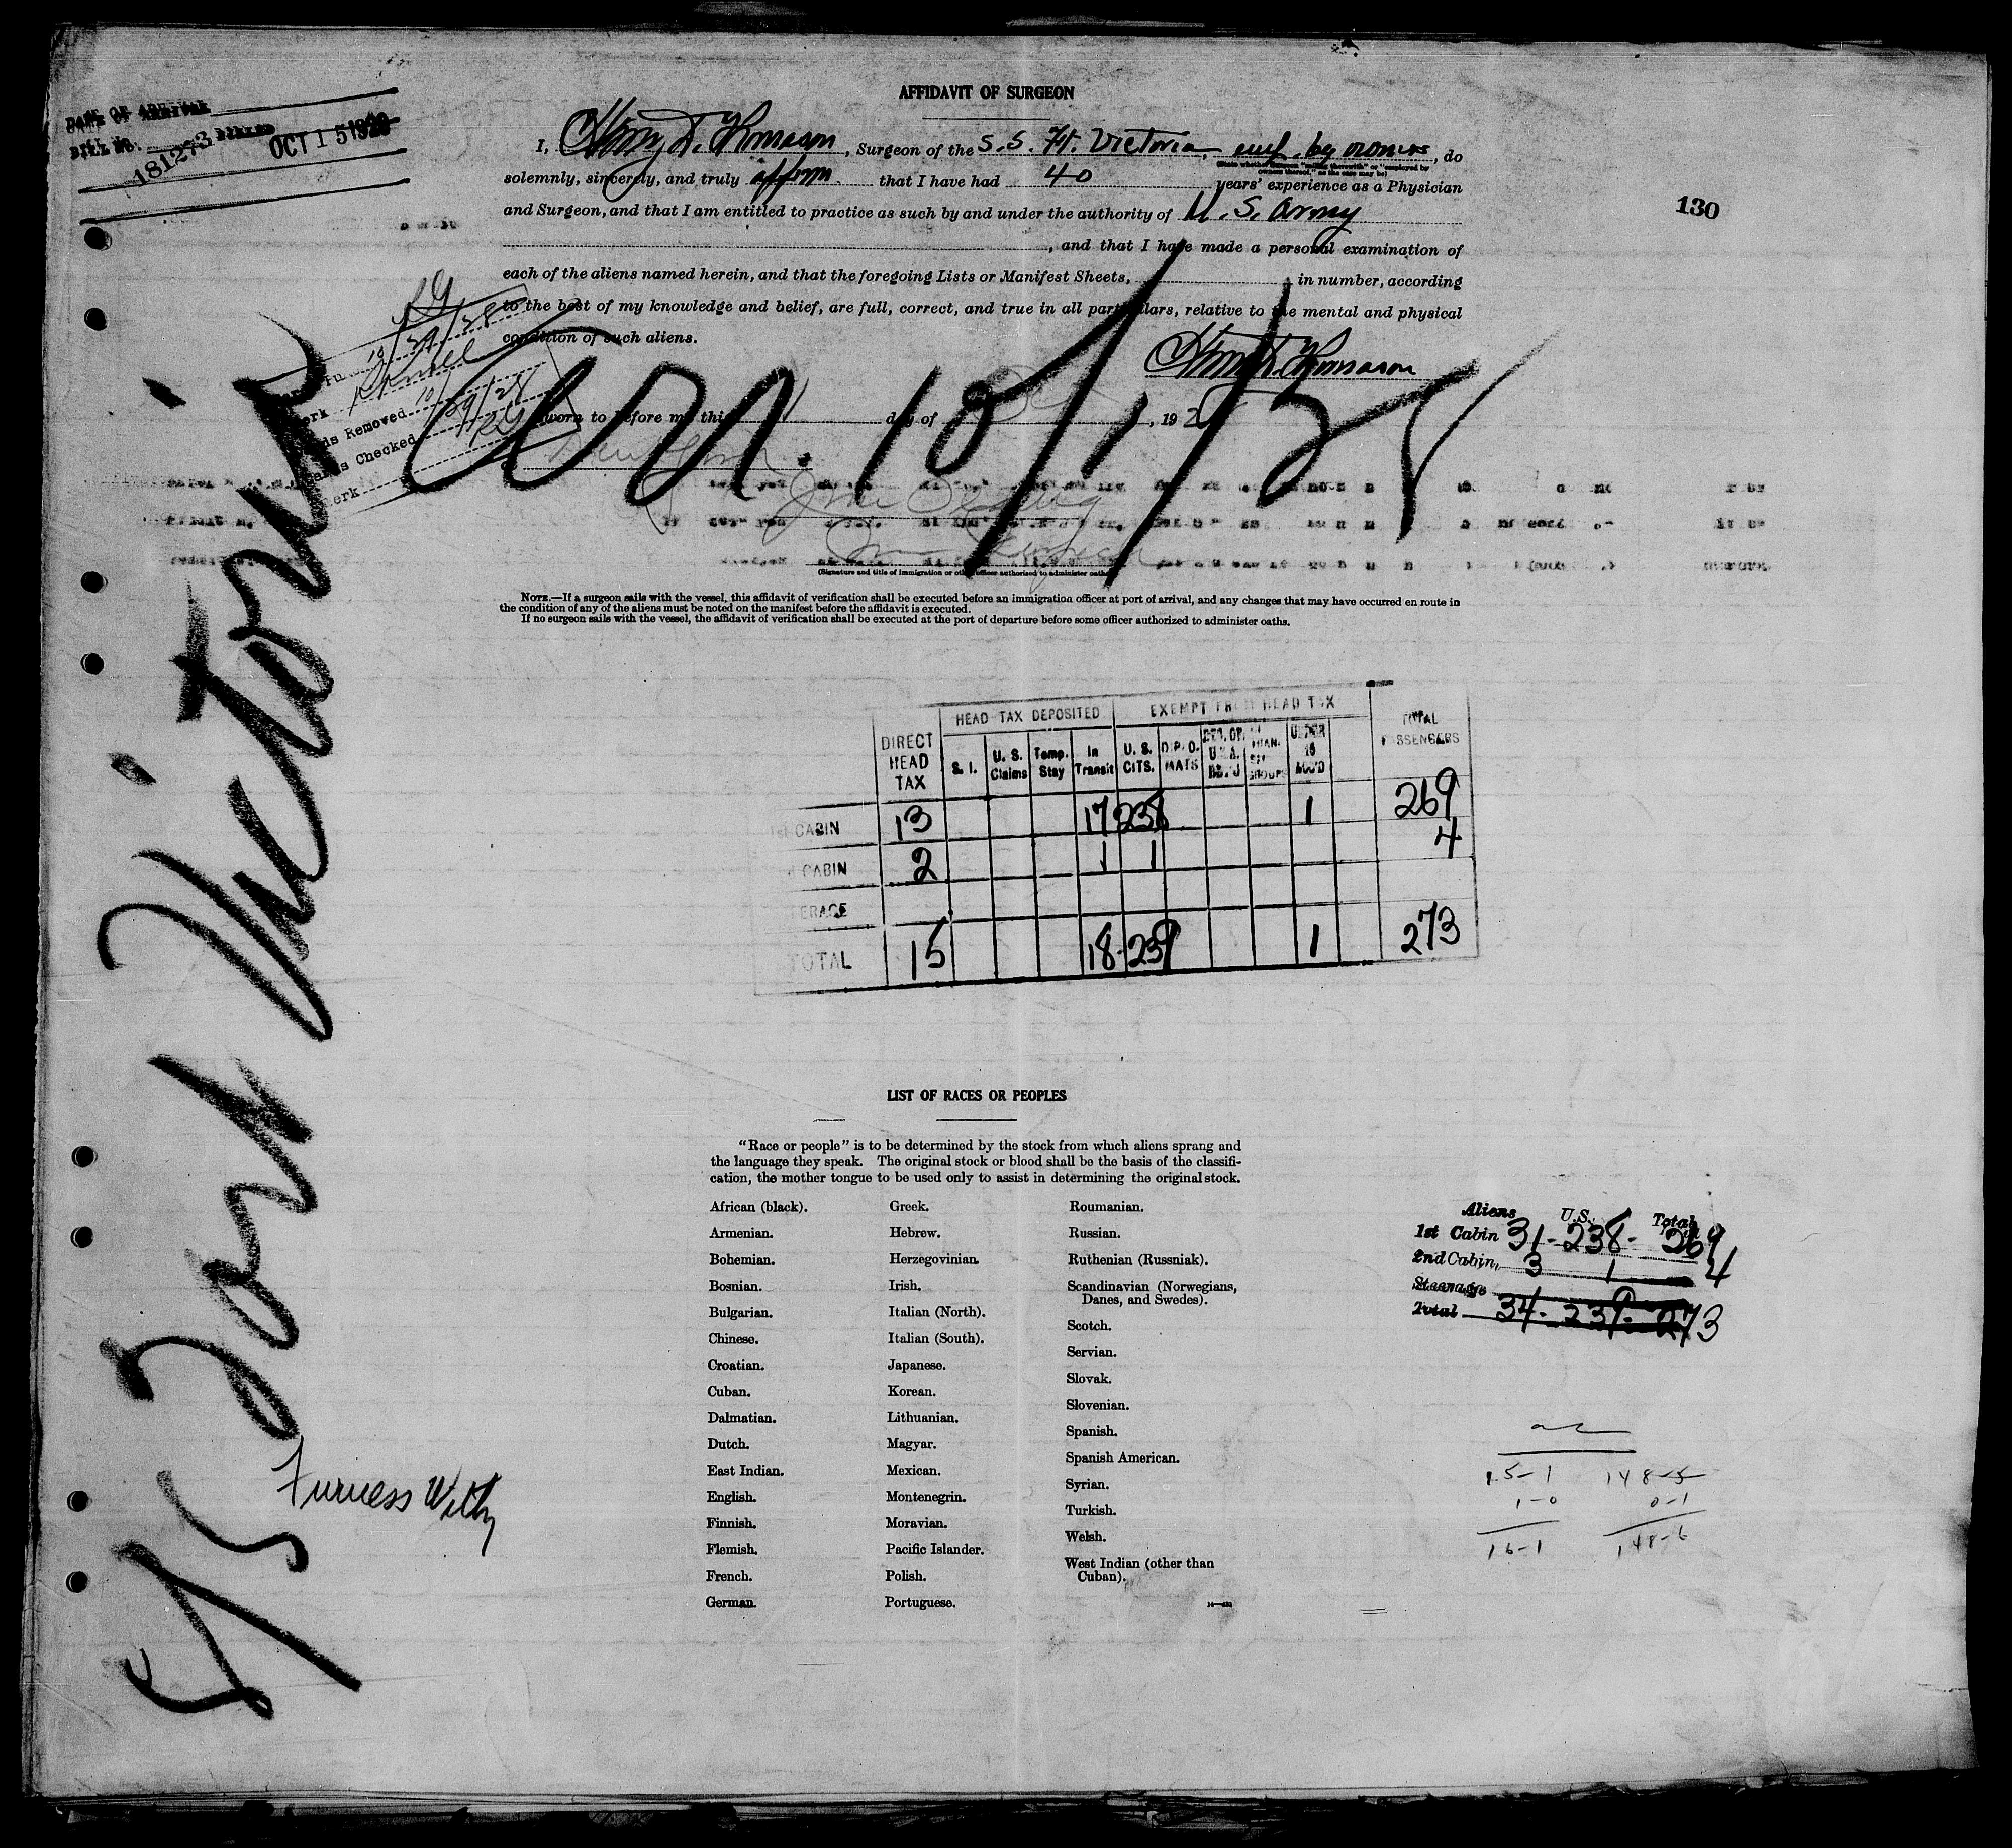 AFFIDAVIT OF SURGEON
DATE OF ARRIVAL
BILL NO. 181273 BILLED OCT 15 1928
I, Henry D. Thomason, Surgeon of the S.S. Ft. Victoria, emp. by owners, do
(State whether Surgeon "sailing therewith" or "employed by owners thereof," as the case may be)
solemnly, sincerely, and truly affirm that I have had 40 years' experience as a Physician
and Surgeon, and that I am entitled to practice as such by and under the authority of U. S. Army
, and that I have made a personal examination of
each of the aliens named herein, and that the foregoing Lists or Manifest Sheets, in number, according
to the best of my knowledge and belief, are full, correct, and true in all particulars, relative to the mental and physical
condition of such aliens.
Henry D. Thomason
Sworn to before me this day of , 192
Arr. 10/1/28
130
10/29/28
Cards Removed 10/29/28
Cards Checked
Clerk
(Signature and title of immigration or other officer authorized to administer oaths)
NOTE.—If a surgeon sails with the vessel, this affidavit of verification shall be executed before an immigration officer at port of arrival, and any changes that may have occurred en route in
the condition of any of the aliens must be noted on the manifest before the affidavit is executed.
If no surgeon sails with the vessel, the affidavit of verification shall be executed at the port of departure before some officer authorized to administer oaths.
S/S Fort Victoria
Furness Withy
HEAD TAX DEPOSITED EXEMPT FROM HEAD TAX
DIRECT HEAD TAX S. I. U. S. Claims Temp. Stay In Transit U. S. CITS. DIPLO. MATS UNDER 16 ACC'D TOTAL PASSENGERS
1st CABIN 13 17 238 1 269
CABIN 2 1 1 4
ERAGE
TOTAL 15 18 239 1 273
LIST OF RACES OR PEOPLES
"Race or people" is to be determined by the stock from which aliens sprang and
the language they speak. The original stock or blood shall be the basis of the classifi-
cation, the mother tongue to be used only to assist in determining the original stock.
African (black).
Armenian.
Bohemian.
Bosnian.
Bulgarian.
Chinese.
Croatian.
Cuban.
Dalmatian.
Dutch.
East Indian.
English.
Finnish.
Flemish.
French.
German.
Greek.
Hebrew.
Herzegovinian.
Irish.
Italian (North).
Italian (South).
Japanese.
Korean.
Lithuanian.
Magyar.
Mexican.
Montenegrin.
Moravian.
Pacific Islander.
Polish.
Portuguese.
Roumanian.
Russian.
Ruthenian (Russniak).
Scandinavian (Norwegians,
Danes, and Swedes).
Scotch.
Servian.
Slovak.
Slovenian.
Spanish.
Spanish American.
Syrian.
Turkish.
Welsh.
West Indian (other than
Cuban).
Aliens U.S. Total
1st Cabin 31 - 238 - 269
2nd Cabin 3 1 4
Steerage
Total 34 - 239 - 273
15-1 148-5
1-0 0-1
16-1 148-6